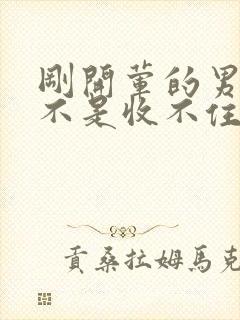 剛開葷的男
不是收不住
貢桑拉姆馬克